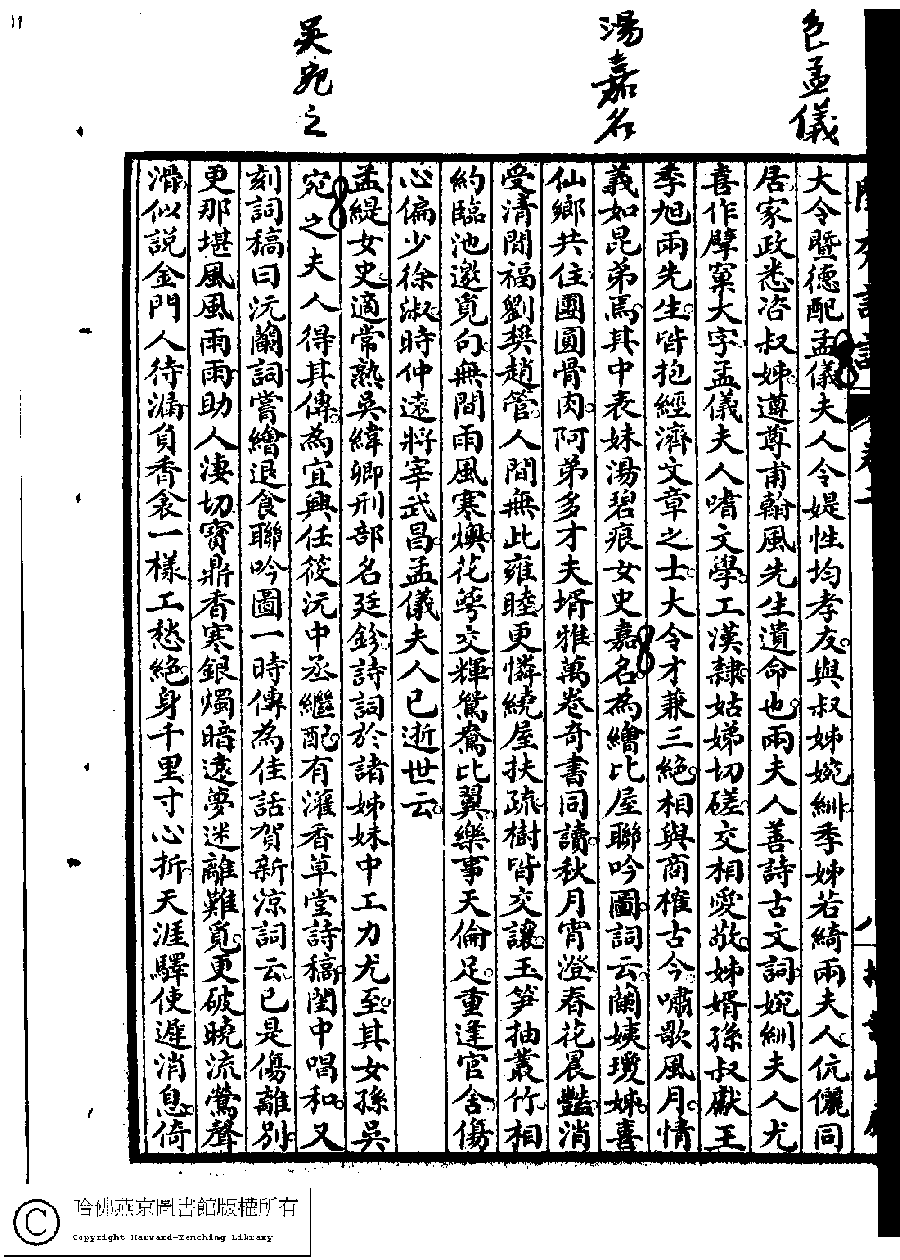 包孟儀
湯嘉名
吳宛之
大令暨德配孟儀夫人令媞性均孝友與叔姊婉紃季姊若綺兩夫人伉儷同
居家政悉咨叔姊遵尊甫翰風先生遺命也兩夫人善詩古文詞婉紃夫人尤
喜作擘窠大字孟儀夫人嗜文學工漢隸姑娣切磋交相愛敬姊婿孫叔獻王
季旭兩先生皆抱經濟文章之士大令才兼三絕相與商榷古今嘯歌風月情
義如昆弟焉其中表妹湯碧痕女史嘉名為繪比屋聯吟圖詞云蘭姨瓊姊喜
仙鄉共住團圓骨肉阿弟多才夫壻雅萬卷奇書同讀秋月宵澄春花晨豔消
受清閒福劉樊趙管人間無此雍睦更憐繞屋扶疏樹皆交讓玉笋抽叢竹相
約臨池邀覓句無間雨風寒燠花萼交輝鴛鴦比翼樂事天倫足重逢官舍傷
心偏少徐淑時仲遠將宰武昌孟儀夫人已逝世云
孟緹女史適常熟吳緯卿刑部名廷鉁詩詞於諸姊妹中工力尤至其女孫吳
宛之夫人得其傳為宜興任筱沅中丞繼配有灌香草堂詩稿閨中唱和又
刻詞稿曰沅蘭詞嘗繪退食聯吟圖一時傳為佳話賀新涼詞云已是傷離別
更那堪風風雨雨助人淒切寶鼎香寒銀燭暗遠夢迷離難覓更破曉流鶯聲
滑似說金門人待漏負香衾一樣工愁絕身千里寸心折天涯驛使遲消息倚
哈佛燕京圖書館版權所有
Copyright Harvard-Yenching Library